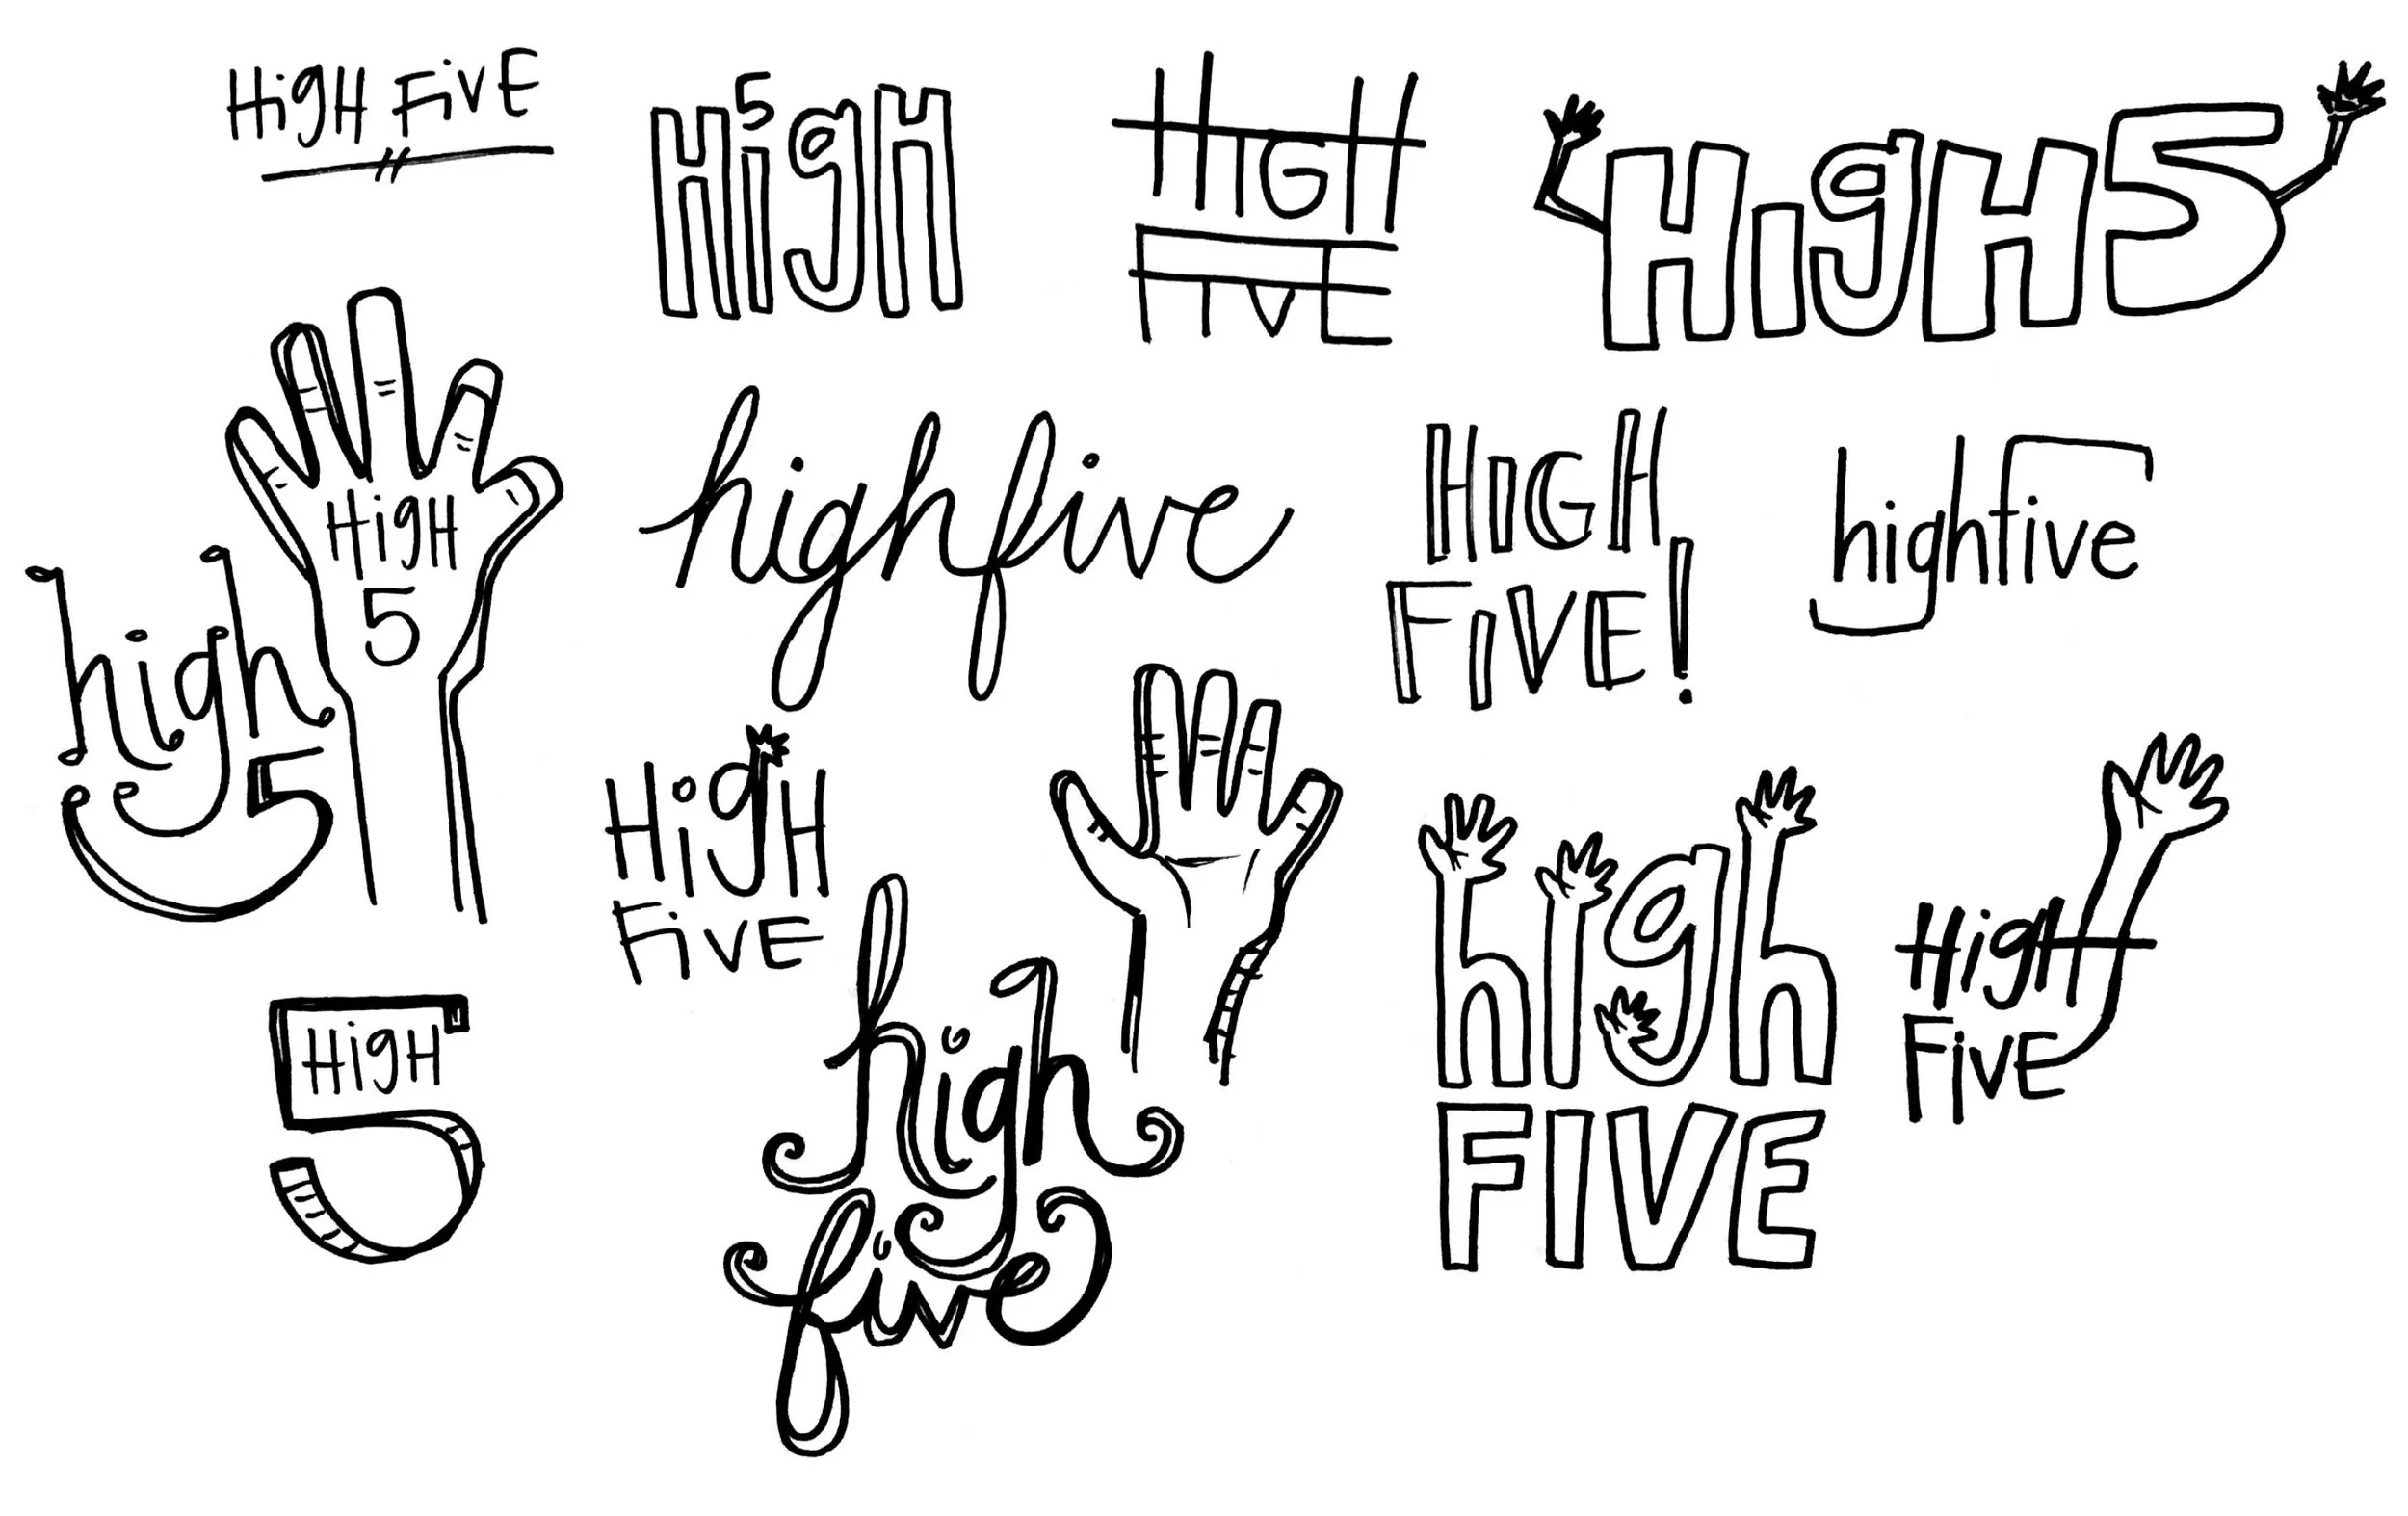 HigH FivE
HigH
5
HIGH
FIVE
HigH5
HigH
5
highfive
HIGH
FiVE!
highfive
high
5
HigH
FivE
high
FIVE
HigH
FivE
HigH
5
high
five